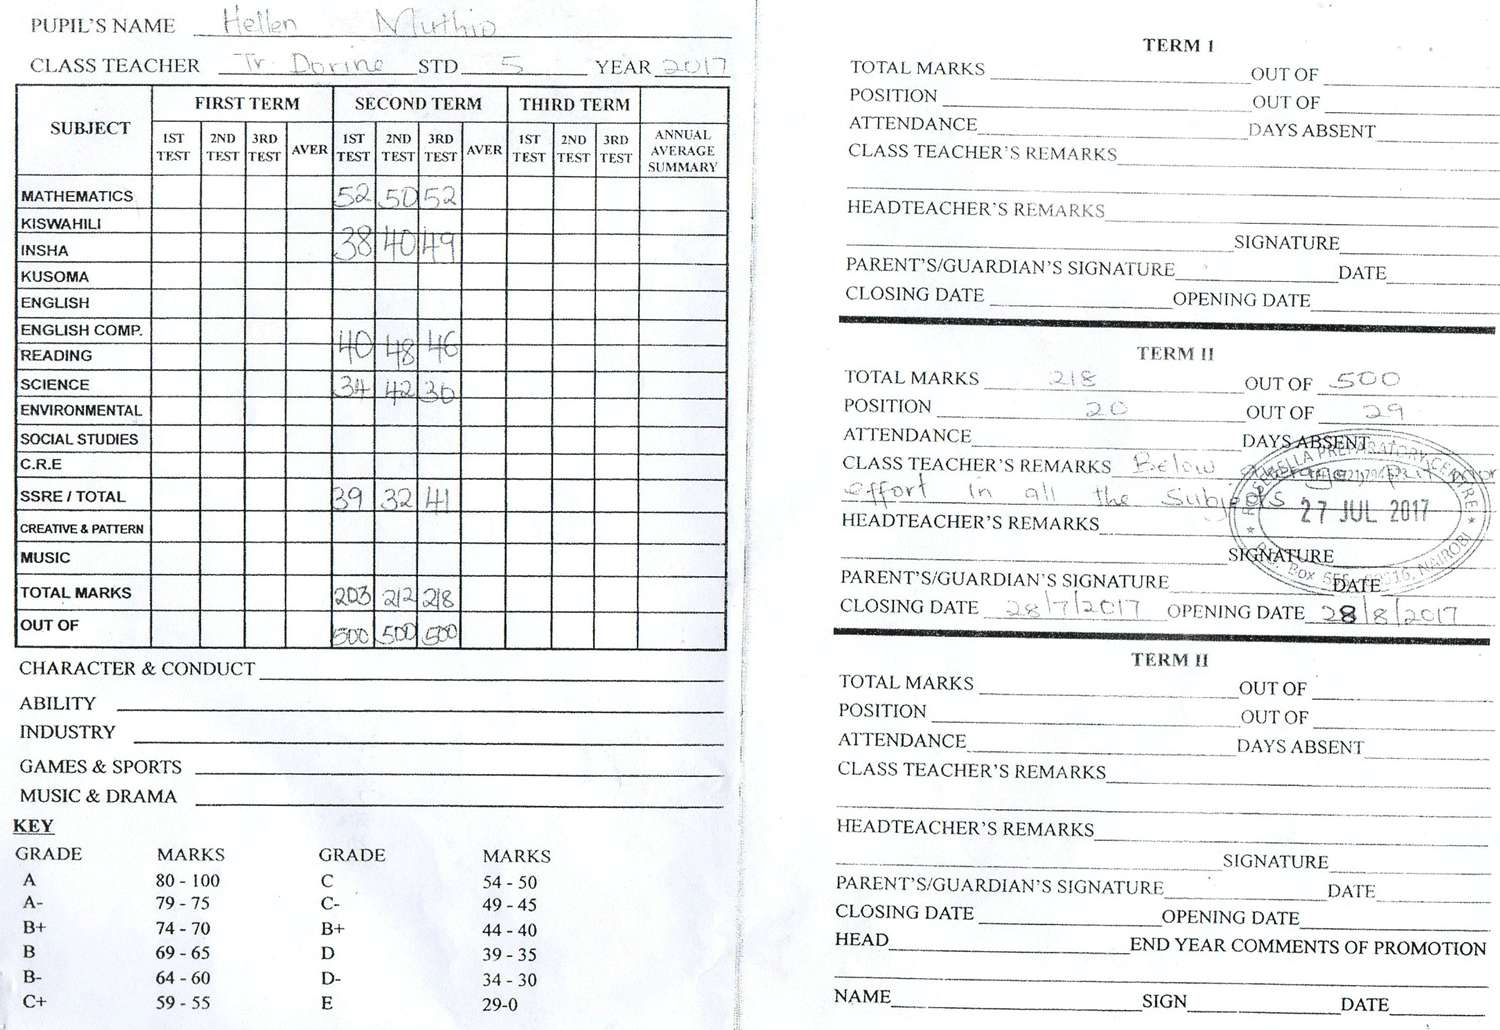 PUPIL'S NAME Hellen Muthio
CLASS TEACHER Tr. Dorine STD 5 YEAR 2017
SUBJECT FIRST TERM SECOND TERM THIRD TERM
1ST TEST 2ND TEST 3RD TEST AVER 1ST TEST 2ND TEST 3RD TEST AVER 1ST TEST 2ND TEST 3RD TEST ANNUAL AVERAGE SUMMARY
MATHEMATICS 52 50 52
KISWAHILI
INSHA 38 40 49
KUSOMA
ENGLISH
ENGLISH COMP.
READING 40 48 46
SCIENCE 34 42 30
ENVIRONMENTAL
SOCIAL STUDIES
C.R.E
SSRE / TOTAL 39 32 41
CREATIVE & PATTERN
MUSIC
TOTAL MARKS 203 212 218
OUT OF 500 500 500
CHARACTER & CONDUCT
ABILITY
INDUSTRY
GAMES & SPORTS
MUSIC & DRAMA
KEY
GRADE MARKS GRADE MARKS
A 80 - 100 C 54 - 50
A- 79 - 75 C- 49 - 45
B+ 74 - 70 B+ 44 - 40
B 69 - 65 D 39 - 35
B- 64 - 60 D- 34 - 30
C+ 59 - 55 E 29-0
TERM I
TOTAL MARKS OUT OF
POSITION OUT OF
ATTENDANCE DAYS ABSENT
CLASS TEACHER'S REMARKS
HEADTEACHER'S REMARKS
SIGNATURE
PARENT'S/GUARDIAN'S SIGNATURE DATE
CLOSING DATE OPENING DATE
TERM II
TOTAL MARKS 218 OUT OF 500
POSITION 20 OUT OF 29
ATTENDANCE DAYS ABSENT
CLASS TEACHER'S REMARKS Below
effort in all the Subjects
HEADTEACHER'S REMARKS
SIGNATURE
PARENT'S/GUARDIAN'S SIGNATURE DATE
CLOSING DATE 28/7/2017 OPENING DATE 28/8/2017
PREPARATORY CENTRE
27 JUL 2017
Box NAIROBI
TERM II
TOTAL MARKS OUT OF
POSITION OUT OF
ATTENDANCE DAYS ABSENT
CLASS TEACHER'S REMARKS
HEADTEACHER'S REMARKS
SIGNATURE
PARENT'S/GUARDIAN'S SIGNATURE DATE
CLOSING DATE OPENING DATE
HEAD END YEAR COMMENTS OF PROMOTION
NAME SIGN DATE